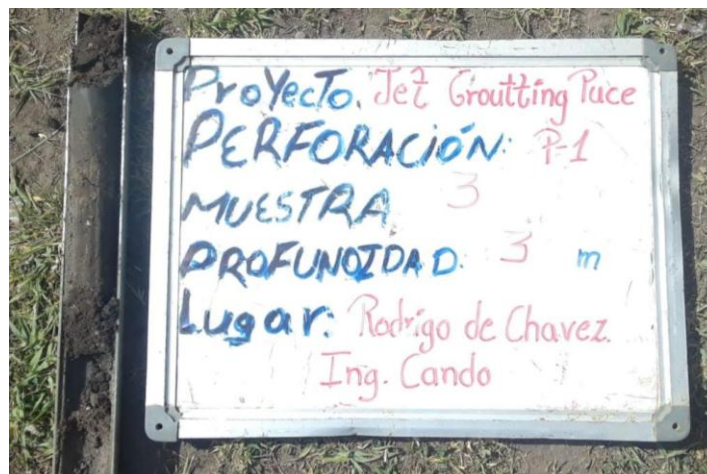 Proyecto. Jet Groutting Puce
PERFORACIÓN: P-1
MUESTRA 3
PROFUNDIDAD. 3 m
Lugar: Rodrigo de Chavez
Ing. Cando